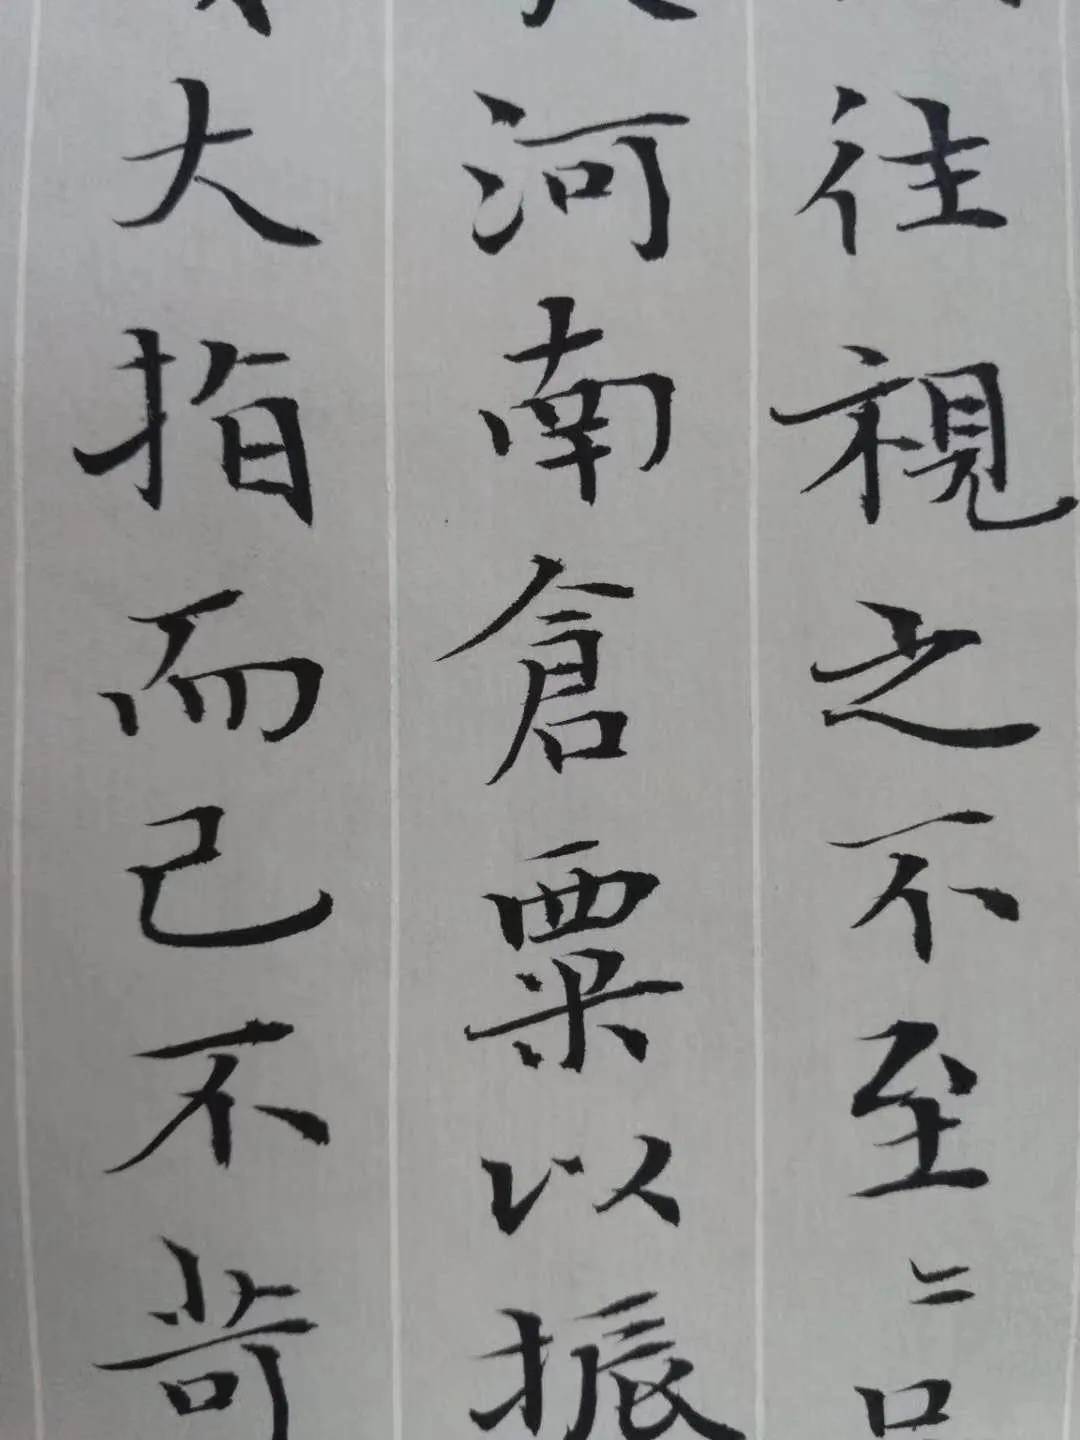 往視之不至
河南倉粟以振
大指而已不苛